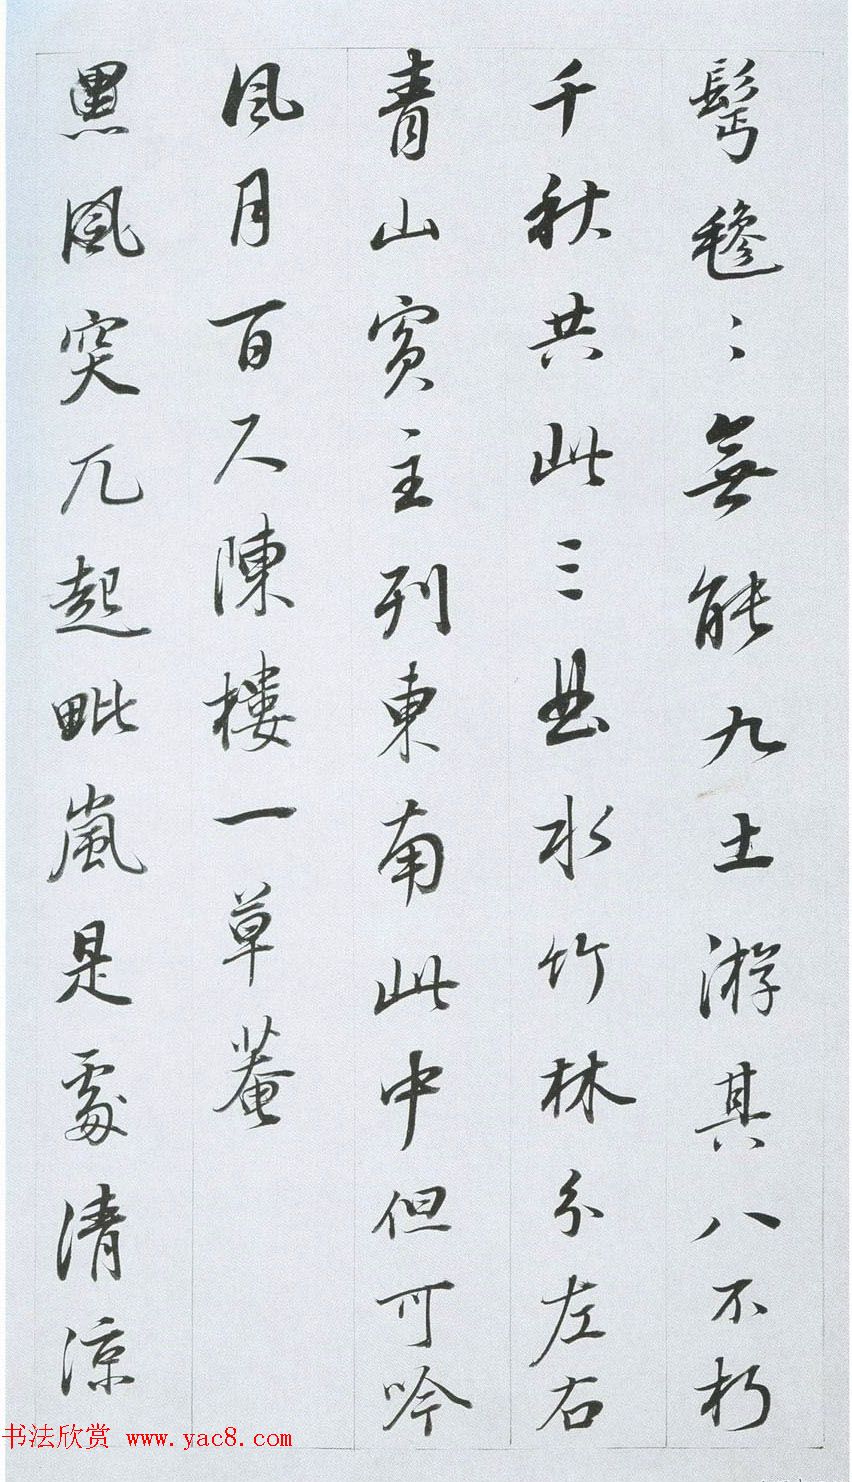 鬢毿々無能九土游其八不朽
千秋共此三曲水竹林分左右
青山賓主列東南此中但可吟
風月百尺陳樓一草菴
黑風突兀起毗嵐是處清涼
书法欣赏 www.yac8.com